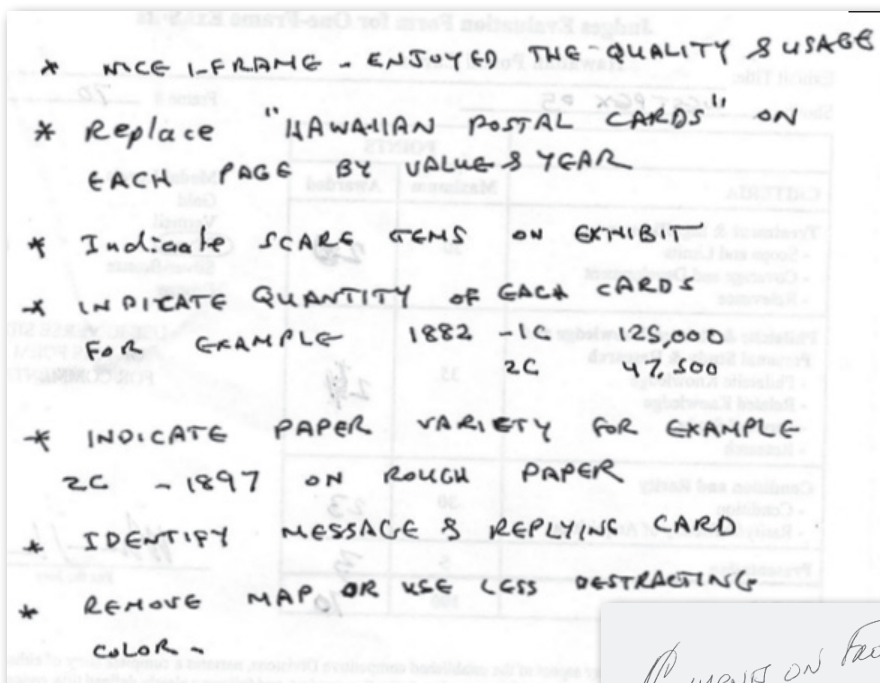 * NICE 1-FRAME - ENJOYED THE QUALITY & USAGE
* Replace "HAWAIIAN POSTAL CARDS" ON
EACH PAGE BY VALUE & YEAR
* Indicate SCARE ITEMS ON EXHIBIT
* INDICATE QUANTITY OF EACH CARDS
FOR EXAMPLE 1882 - 1C 125,000
2C 47,500
* INDICATE PAPER VARIETY FOR EXAMPLE
2C - 1897 ON ROUGH PAPER
* IDENTIFY MESSAGE & REPLYING CARD
* REMOVE MAP OR USE LESS DESTRACTING
COLOR -
ON